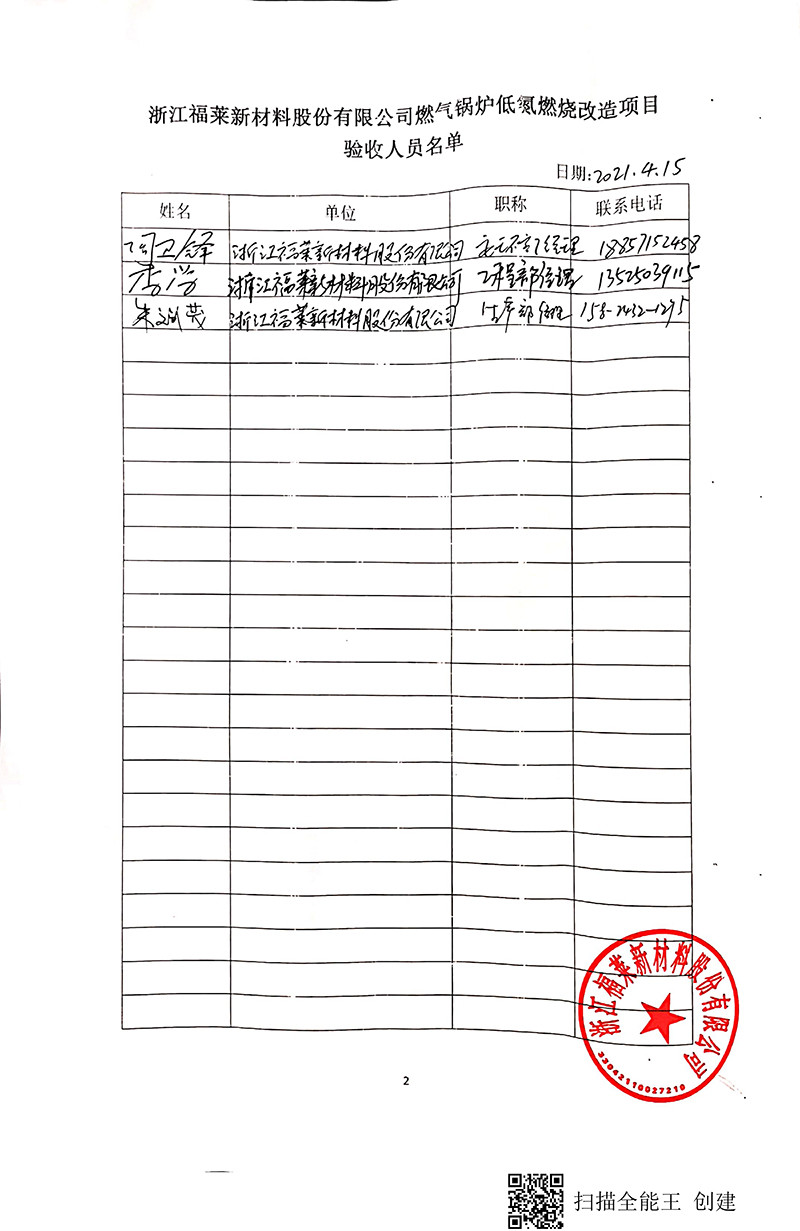 浙江福莱新材料股份有限公司燃气锅炉低氮燃烧改造项目
验收人员名单
日期:2021.4.15
姓名 单位 职称 联系电话
浙江福莱新材料股份有限公司 经理 18857152458
李学 浙江福莱新材料股份有限公司 工程部经理 13525039115
朱 茂 浙江福莱新材料股份有限公司 158-2432-1295
浙江福莱新材料股份有限公司
33042110027210
2
扫描全能王 创建